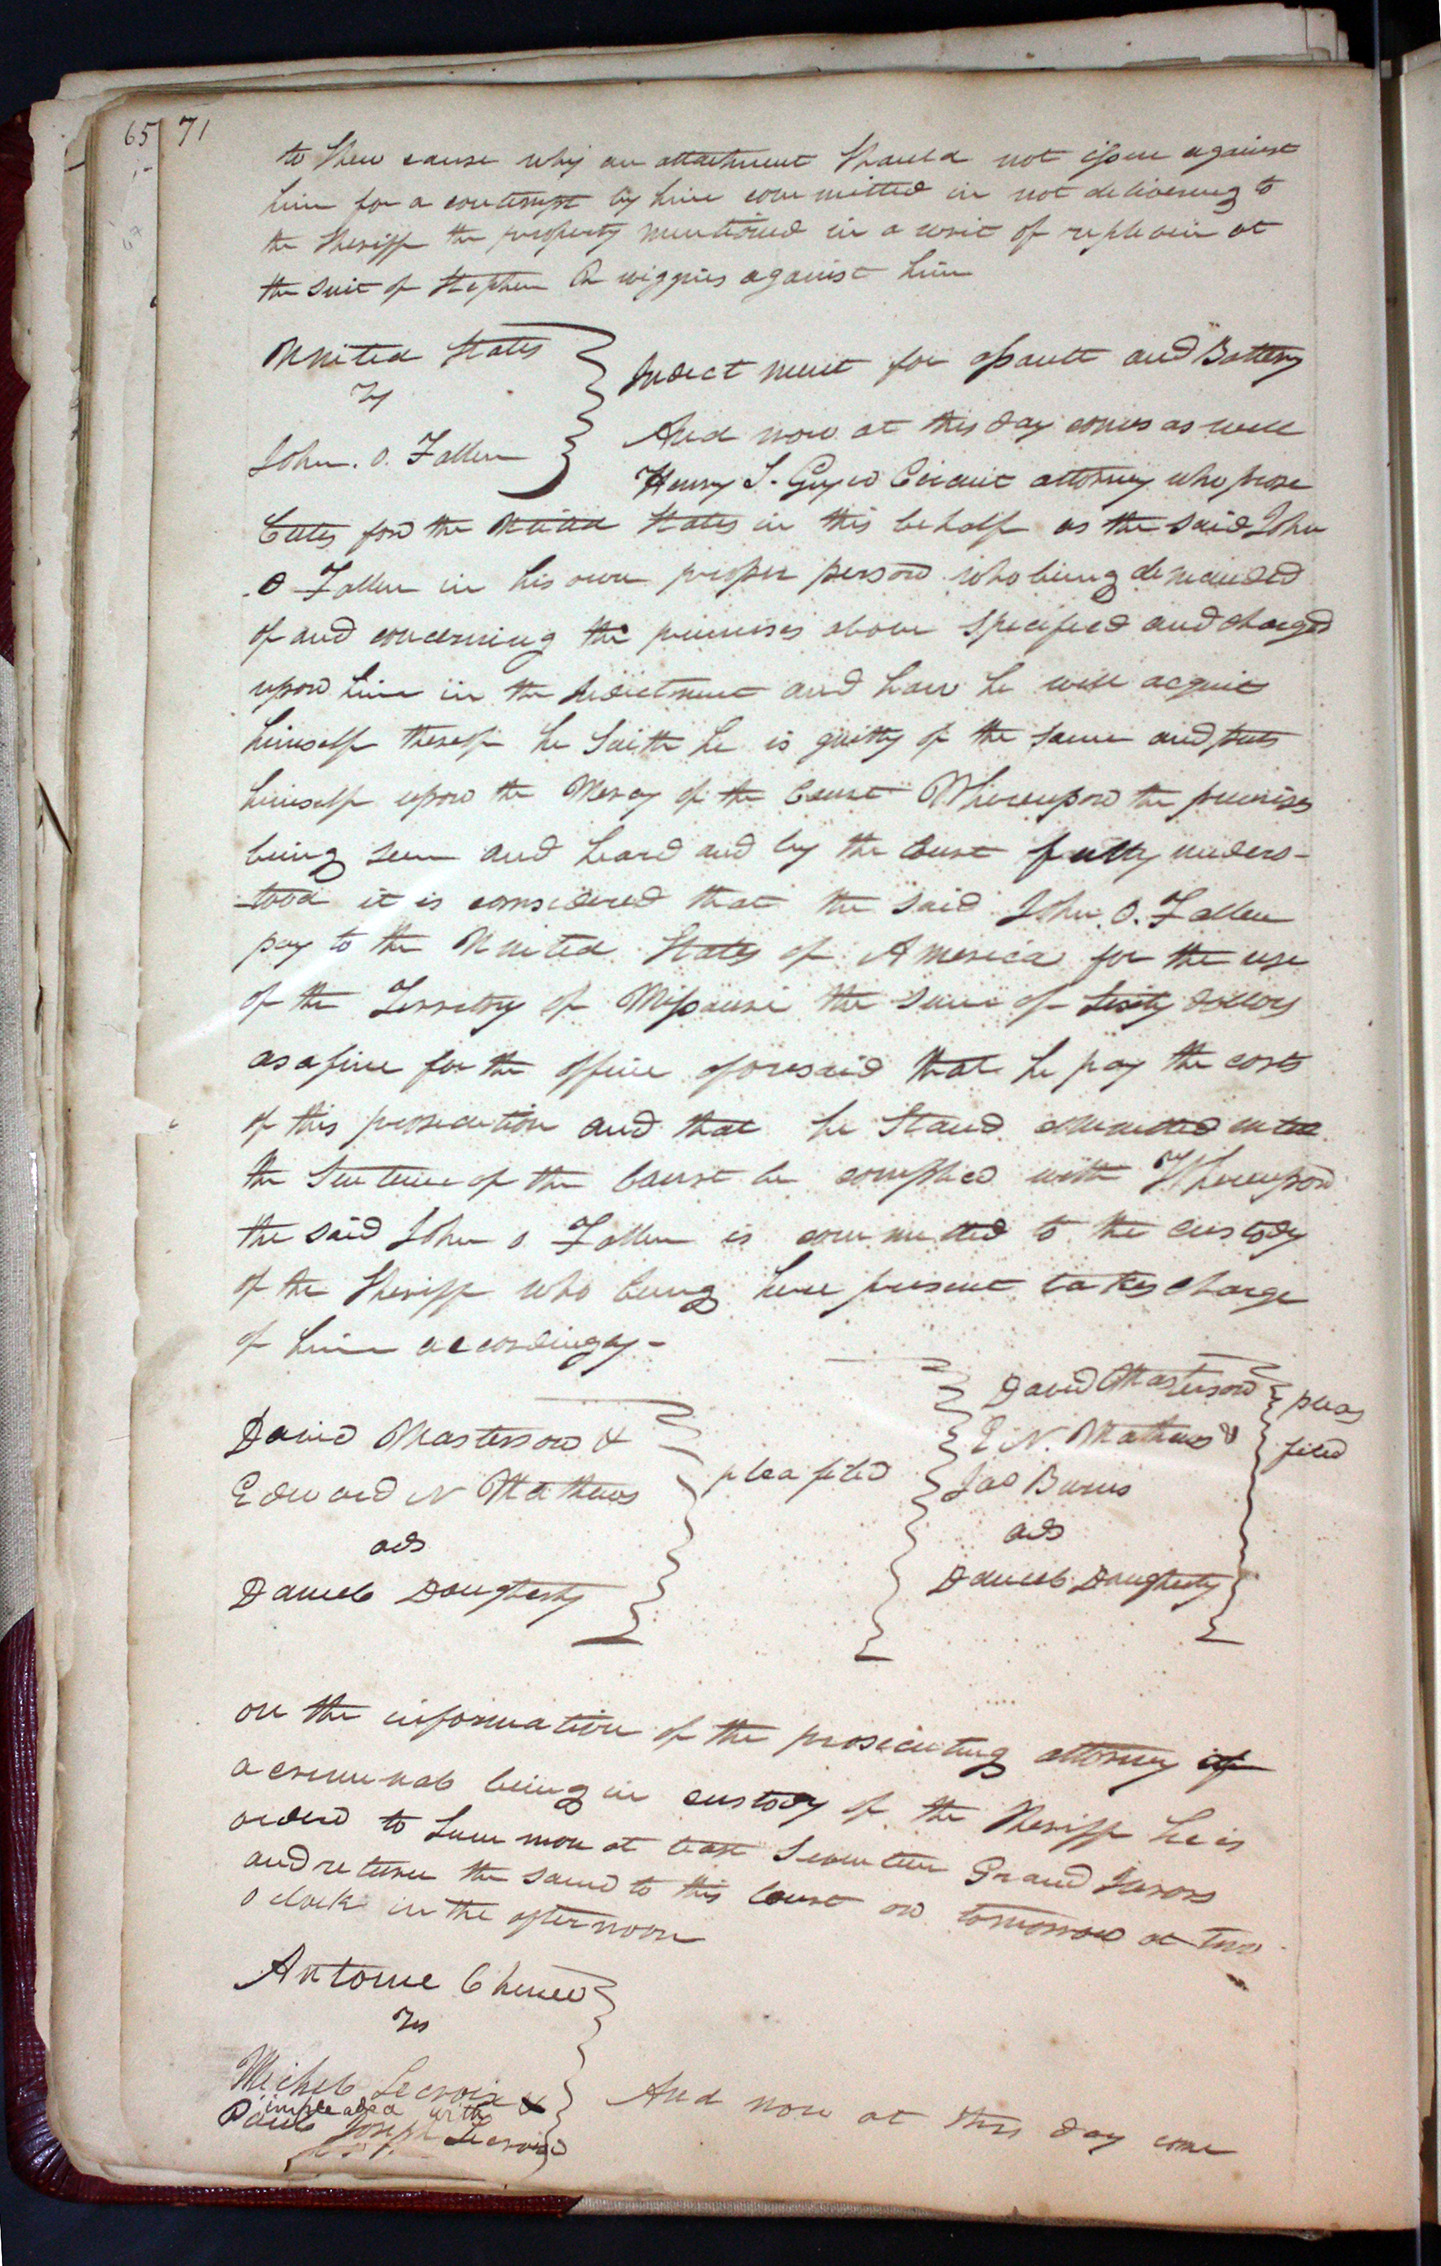 65 71
to Shew cause why an attachment Should not issue against
him for a contempt by him committed in not delivering to
the Sheriff the property mentioned in a writ of replevin at
the suit of Stephen wiggins against him
United States
vs
John. O. Fallen
Indictment for assault and Battery
And now at this day comes as well
Henry S. Geyer Circuit attorney who prose
Cutes for the United States in this behalf as the said John
O Fallen in his own proper person who being demanded
of and concerning the premises above Specified and charged
upon him in the Indictment and how he will acquit
himself thereof he Saith he is guilty of the same and puts
himself upon the Mercy of the Court Whereupon the premises
being seen and heard and by the Court fully unders-
tood it is considered that the said John. O. Fallen
pay to the United States of America for the use
of the Territory of Missouri the sum of dollars
as a fine for the offence aforesaid that he pay the costs
of this prosecution and that he Stand committed until
the Sentence of the Court be complied with Whereupon
the said John O Fallen is committed to the custody
of the Sheriff who being here present takes charge
of him accordingly -
David Masterson &
Edward N Mathews
ads
Daniel Dougherty
plea filed
David Masterson
E N. Mathews &
Jas Burns
ads
Daniel Dougherty
pleas
filed
on the information of the prosecuting attorney of
a criminal being in custody of the Sheriff he is
orderd to Summon at least Seventeen Grand Jurors
and return the same to this Court on tomorrow at two
o clock in the afternoon
Antoine Chenie
vs
Michel Lecroix &
impleaded with
Paul Joseph Lecroix
And now at this day come